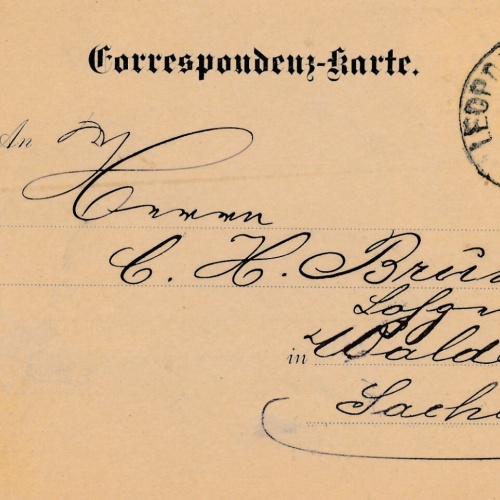 Correspondenz-Karte.
LEOPO
An Herrn
C. H. Brü
in Wald
Sach